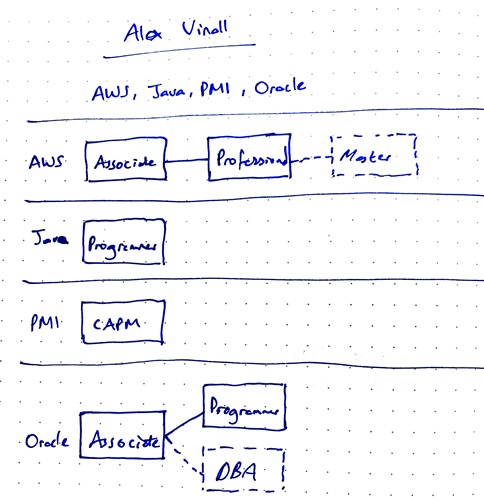 Alex Vinall
AWS, Java, PMI, Oracle
AWS
Associate
Professional
Master
Java
Programmer
PMI
CAPM
Oracle
Associate
Programmer
DBA